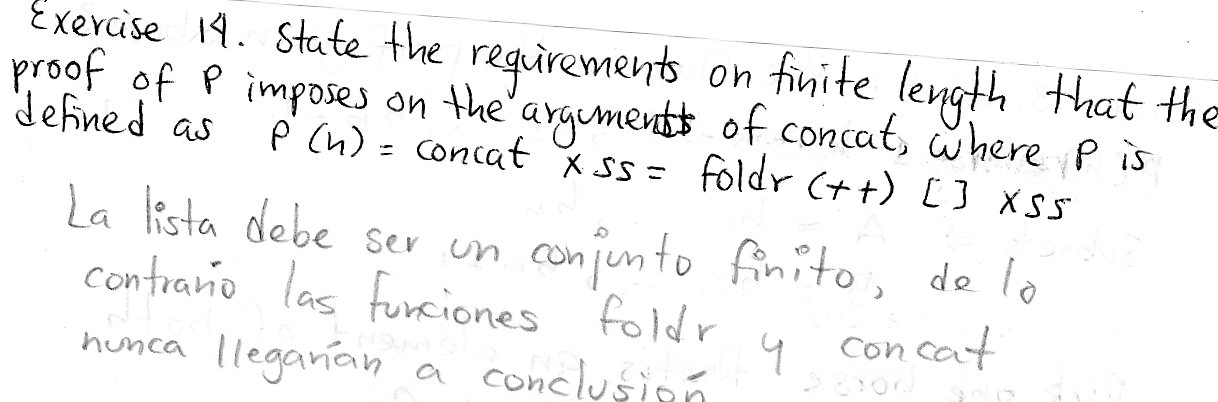 Exercise 14. State the requirements on finite length that the
proof of P imposes on the arguments of concat, where P is
defined as P (n) = concat xss = foldr (++) [] xss
La lista debe ser un conjunto finito, de lo
contrario las funciones foldr y concat
nunca llegarían a conclusión